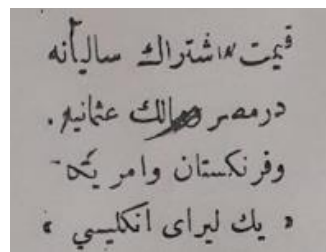 قیمت اشتراك سالیانه
درمصر وممالك عثمانیه .
وفرنکستان وامریکه
« یك لیرای انکلیسي »